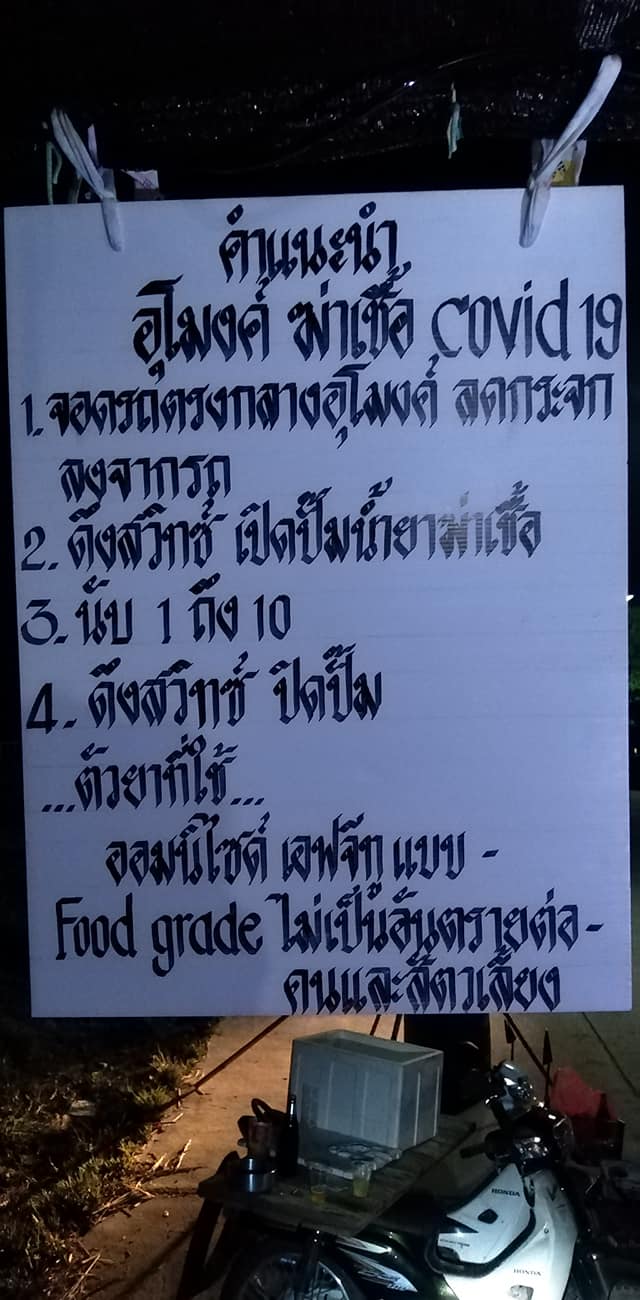 คำแนะนำ
อุโมงค์ ฆ่าเชื้อ Covid 19
1. จอดรถตรงกลางอุโมงค์ ลดกระจก
ลงจากรถ
2. ดึงสวิทซ์ เปิดปั๊มน้ำยาฆ่าเชื้อ
3. นับ 1 ถึง 10
4. ดึงสวิทซ์ ปิดปั๊ม
...ตัวยาที่ใช้...
ออมนิไซด์ เอฟจีทู แบบ -
Food grade ไม่เป็นอันตรายต่อ -
คนและสัตว์เลี้ยง
HONDA
HONDA